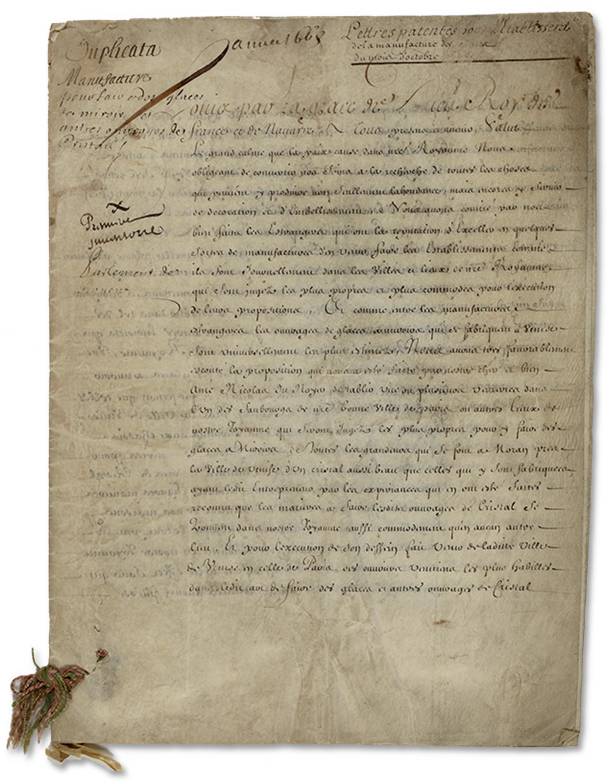 Duplicata
Janvier 1683
Lettres patentes pour l'établissemt
de la manufacture des glaces
du mois d'octobre
Manufactures
pour faire des glaces
de miroirs et
autres ouvrages de
Cristail
Louis par la grace de Dieu Roy de
france et de Navarre A tous presens et a venir Salut
Le grand calme que la paix cause dans nre Royaume Nous
obligeant de convertir nos soins a la recherche de toutes les choses
qui peuvent y produire non seullement labondance mais encores y servir
de decoration et d'Embellissement Nous avons convié par nos
bien faits les Estrangers qui ont la reputation d'Exceller en quelques
sortes de manufactures d'en venir faire les Establissements comme
ils font Journellement dans les Villes et lieux de nre Royaume
qui sont jugez les plus propres et plus commodes pour l'execution
de leurs propositions. Et comme entre les manufactures
Estrangeres les ouvrages de glaces a miroirs qui se fabriquent a Venise
sont universellement les plus estimées Nous avons tres favorablement
escouté la proposition qui nous a esté faite par nostre cher et bien
Amé Nicolas du Noyer d'establir une ou plusieurs verreries dans
l'un des fauxbourgs de nre bonne Ville de paris ou autres lieux de
nostre Royaume qui seront jugez les plus propres pour y faire des
glaces a Miroirs de toutes les grandeurs qui se font a Moran pres
la Ville de Venise d'un cristal aussi beau que celles qui y sont fabriquées
ayant ledit Entrepreneur par les experiences qui en ont esté faites
reconnu que les matieres a faire lesdits ouvrages de Cristal se
trouvent dans nostre Royaume aussi commodement qu'en aucun autre
lieu. Et pour l'execution de son dessein fait venir de ladite Ville
de Venise en celle de Paris des ouvriers venitiens les plus habilles
de faire des glaces et autres ouvrages de Cristal
Premiere
Parlement de